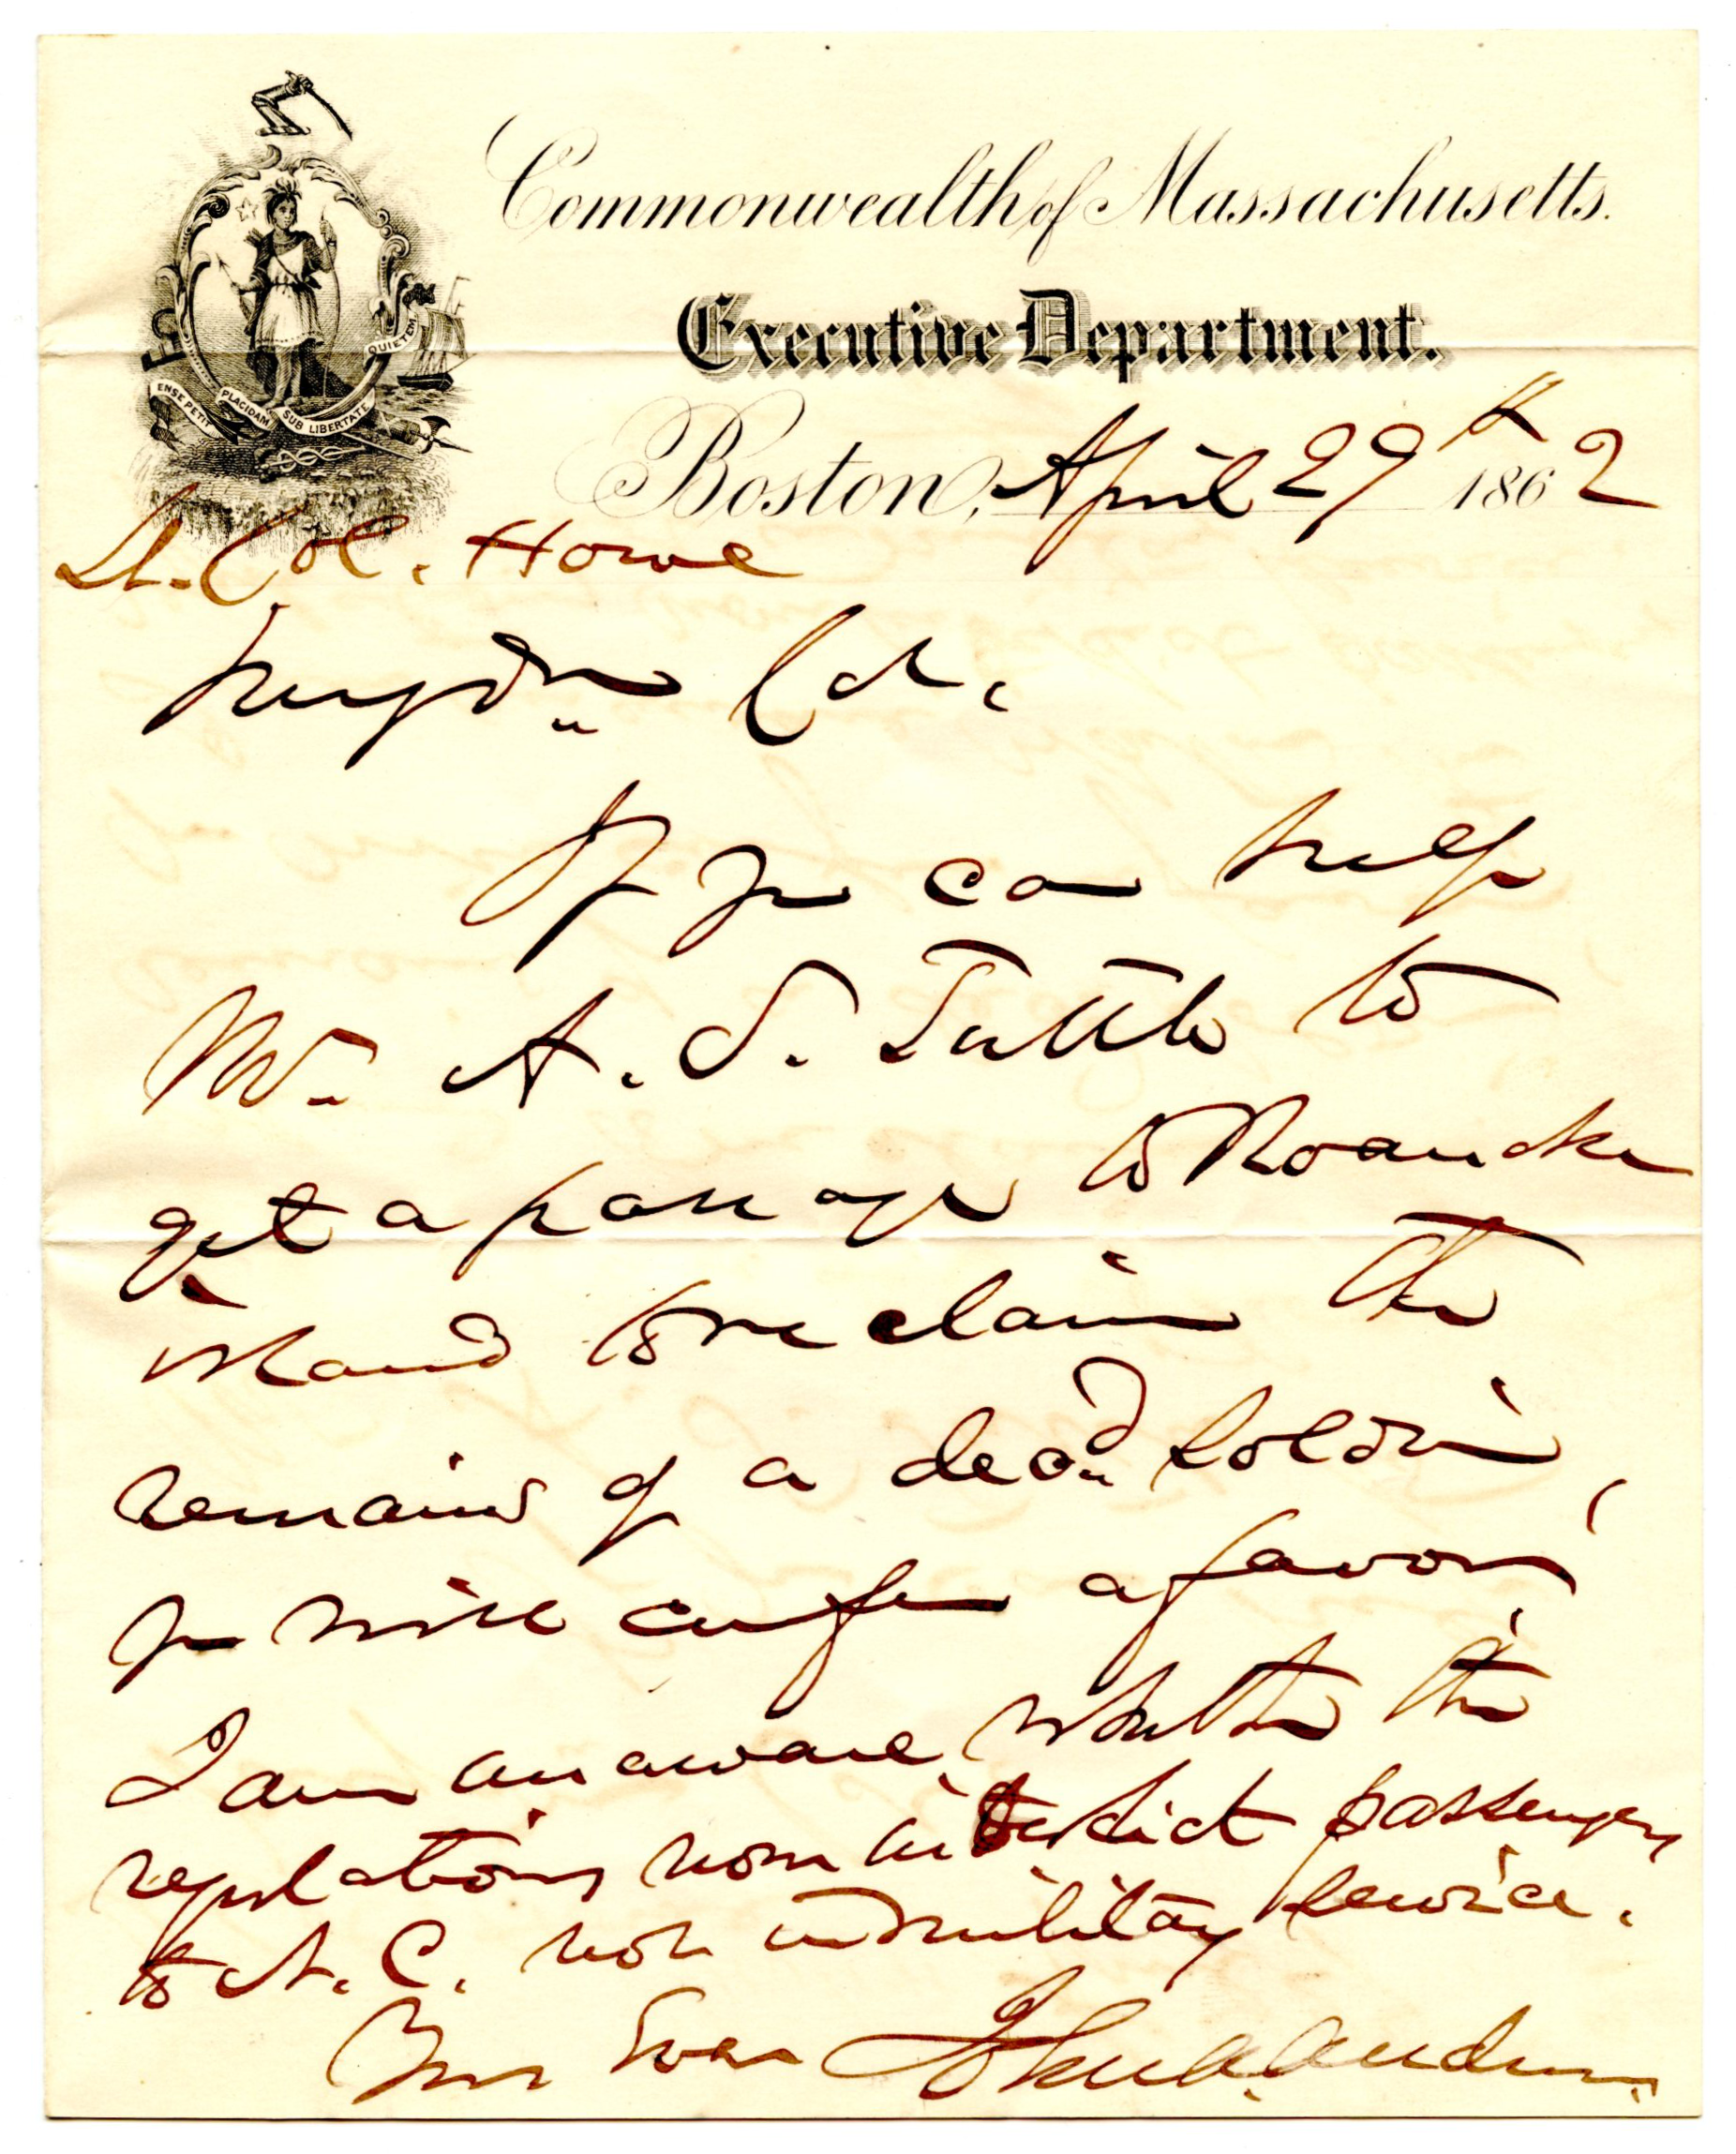 Commonwealth of Massachusetts.
Executive Department.
ENSE PETIT PLACIDAM SUB LIBERTATE QUIETEM
Boston, April 29th 1862
Lt. Col. Howe
My dr Col.
If you can help
Mr. A. S. Tuttle to
get a passage to Roanoke
island to reclaim the
remains of a decd soldier,
you will confer a favor.
I am unaware, whether the
regulations now interdict passengers
to N. C. not in military service.
Yrs Ever John A. Andrew.